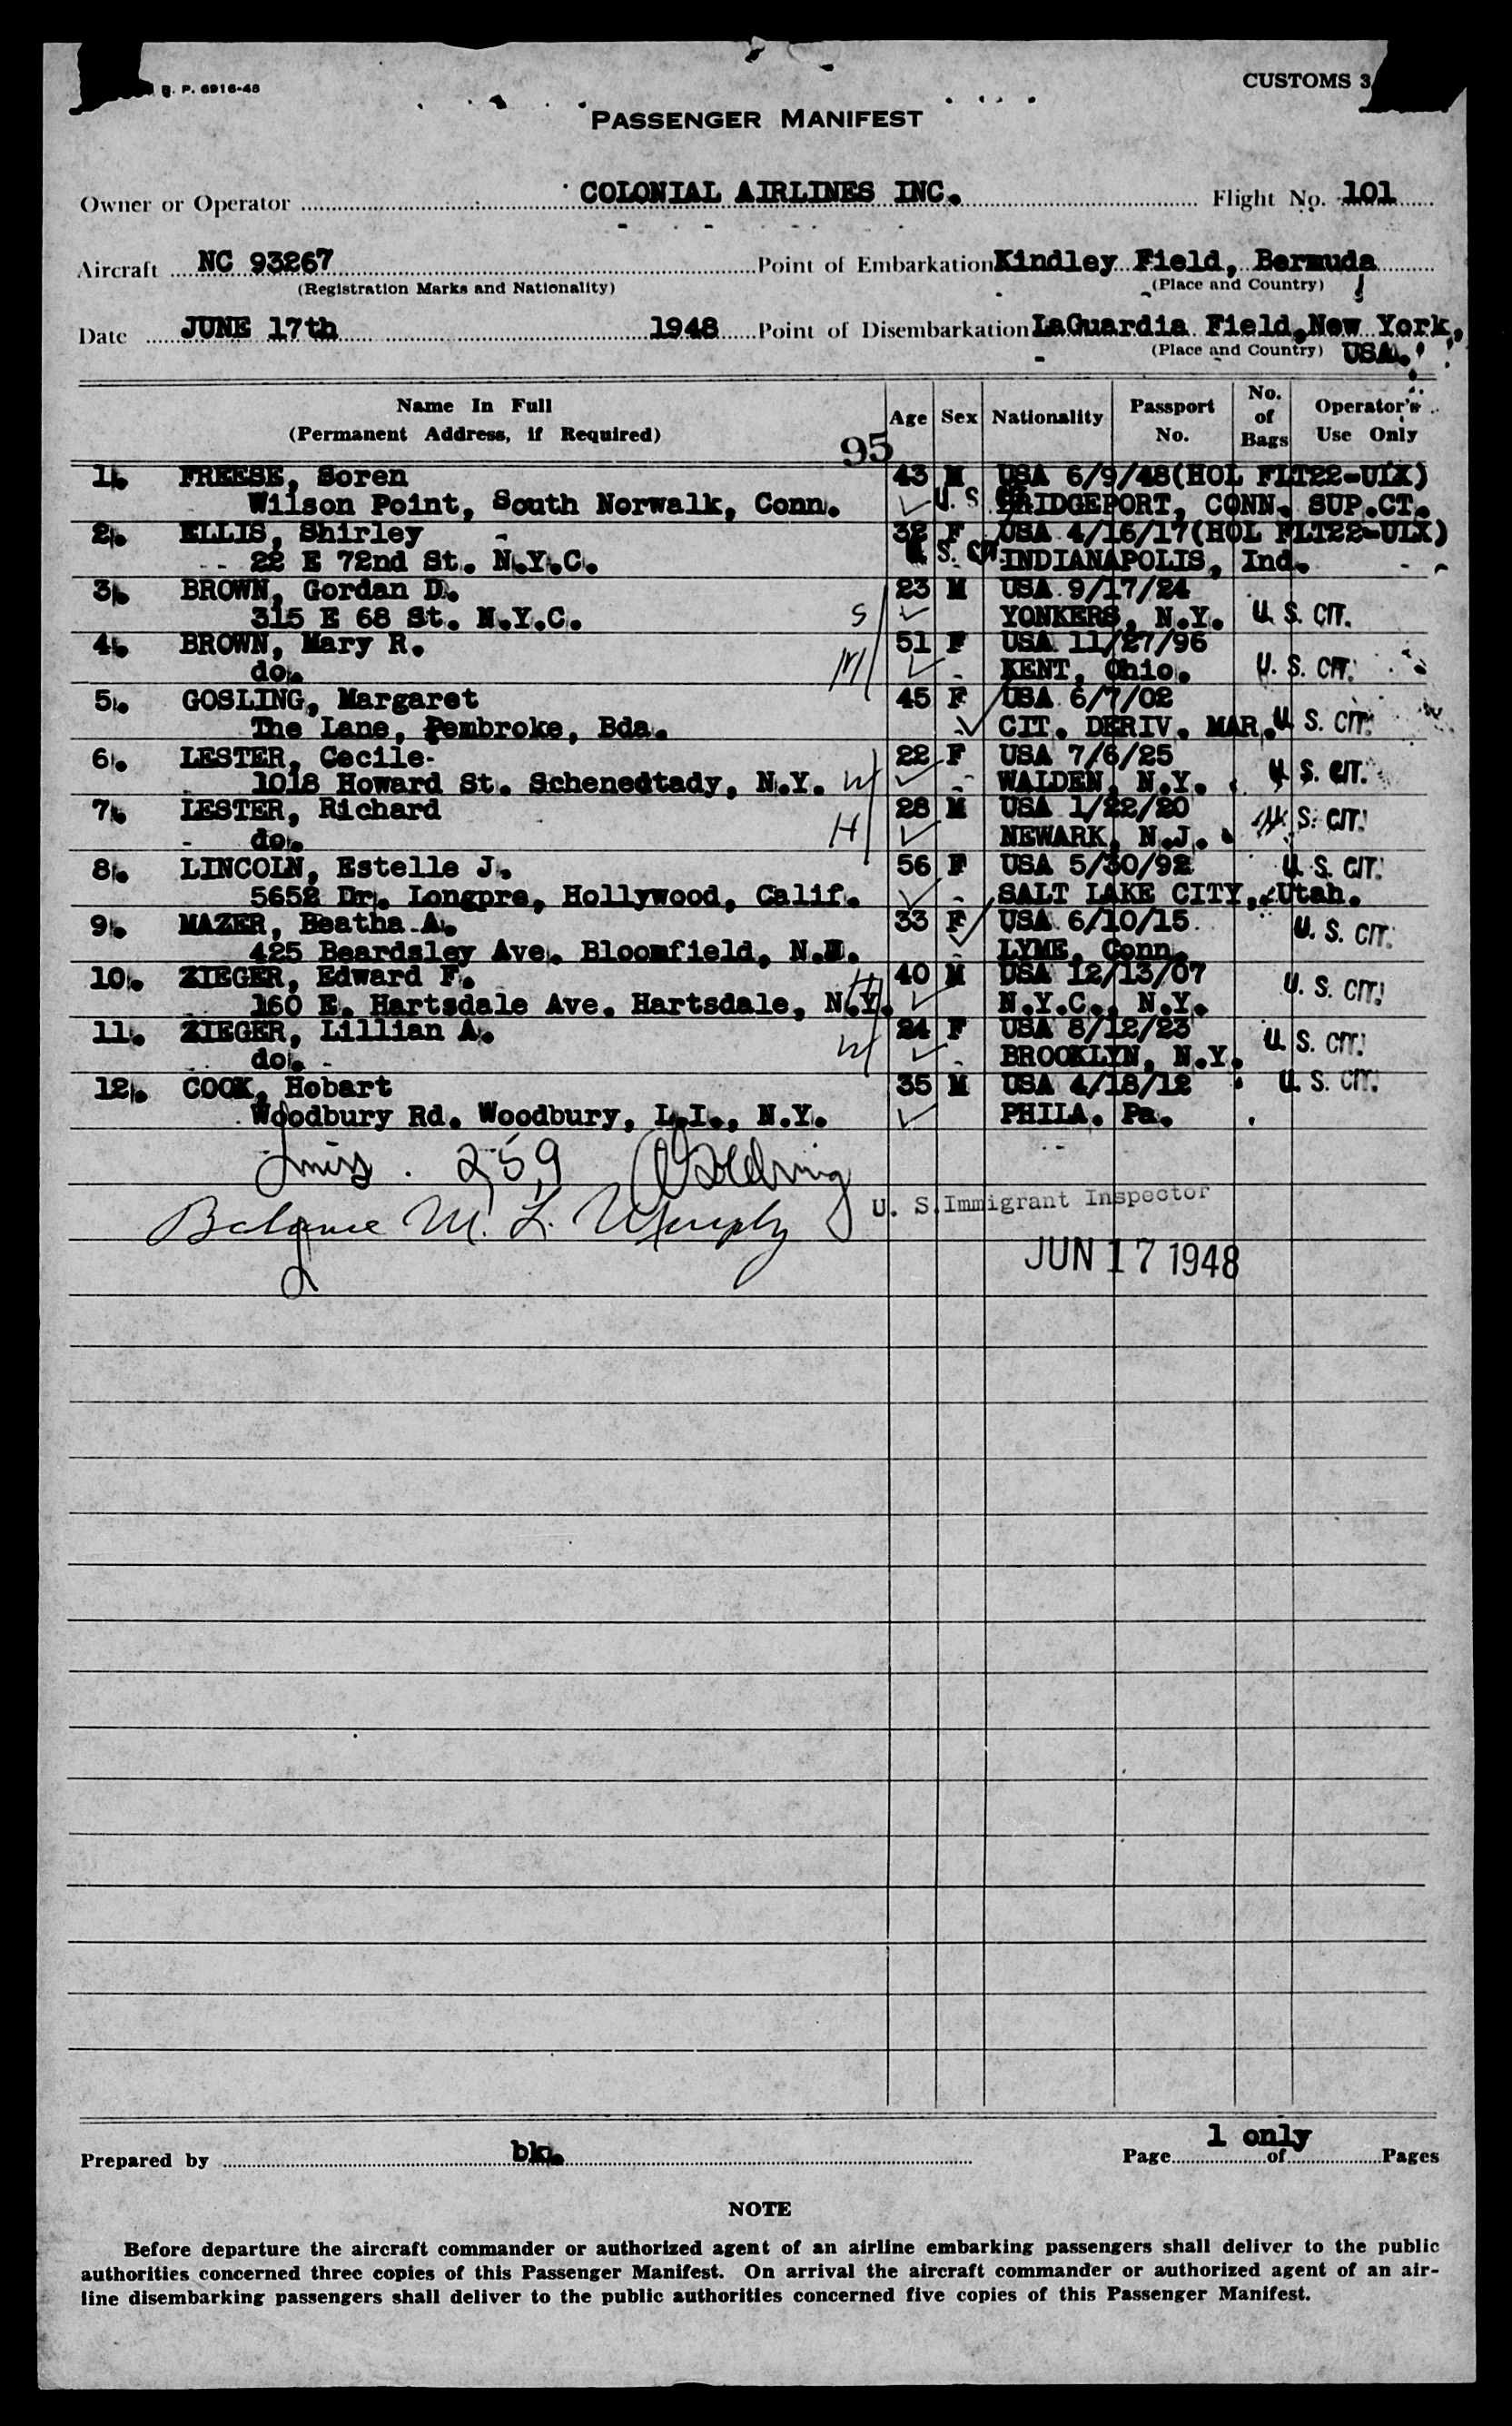 B. P. 6916-48
CUSTOMS 3
PASSENGER MANIFEST
Owner or Operator COLONIAL AIRLINES INC. Flight No. 101
Aircraft NC 93267 Point of Embarkation Kindley Field, Bermuda
(Registration Marks and Nationality) (Place and Country)
Date JUNE 17th 1948 Point of Disembarkation LaGuardia Field, New York,
(Place and Country) USA.
Name In Full Age Sex Nationality Passport No. No. of Bags Operator's Use Only
(Permanent Address, if Required)
95
1. FREESE, Soren 43 M USA 6/9/48(HOL FLT22-UIX)
Wilson Point, South Norwalk, Conn. U. S. BRIDGEPORT, CONN. SUP.CT.
2. ELLIS, Shirley 32 F USA 4/16/17(HOL FLT22-UIX)
22 E 72nd St. N.Y.C. U. S. CIT. INDIANAPOLIS, Ind.
3. BROWN, Gordan D. 23 M USA 9/17/24
315 E 68 St. N.Y.C. S YONKERS, N.Y. U. S. CIT.
4. BROWN, Mary R. 51 F USA 11/27/96
do. M KENT, Ohio. U. S. CIT.
5. GOSLING, Margaret 45 F USA 6/7/02
The Lane, Pembroke, Bda. CIT. DERIV. MAR. U. S. CIT.
6. LESTER, Cecile 22 F USA 7/6/25
1018 Howard St. Schenedtady, N.Y. W WALDEN, N.Y. U. S. CIT.
7. LESTER, Richard 28 M USA 1/22/20
do. H NEWARK, N.J. U. S. CIT.
8. LINCOLN, Estelle J. 56 F USA 5/30/92 U. S. CIT.
5652 Dr. Longpre, Hollywood, Calif. SALT LAKE CITY, Utah.
9. MAZER, Beatha A. 33 F USA 6/10/15 U. S. CIT.
425 Beardsley Ave. Bloomfield, LYME, Conn.
10. ZIEGER, Edward F. H 40 M USA 12/13/07 U. S. CIT.
160 E. Hartsdale Ave. Hartsdale, N.Y. N.Y.C., N.Y.
11. ZIEGER, Lillian A. 24 F USA 8/12/23 U. S. CIT.
do. W BROOKLYN, N.Y.
12. COOK, Hobart 35 M USA 4/18/12 U. S. CIT.
Woodbury Rd. Woodbury, L.I., N.Y. PHILA. Pa.
2,5,9
Balance M. L. Murphy
U. S. Immigrant Inspector
JUN 17 1948
Prepared by bk. Page 1 only of Pages
NOTE
Before departure the aircraft commander or authorized agent of an airline embarking passengers shall deliver to the public
authorities concerned three copies of this Passenger Manifest. On arrival the aircraft commander or authorized agent of an air-
line disembarking passengers shall deliver to the public authorities concerned five copies of this Passenger Manifest.